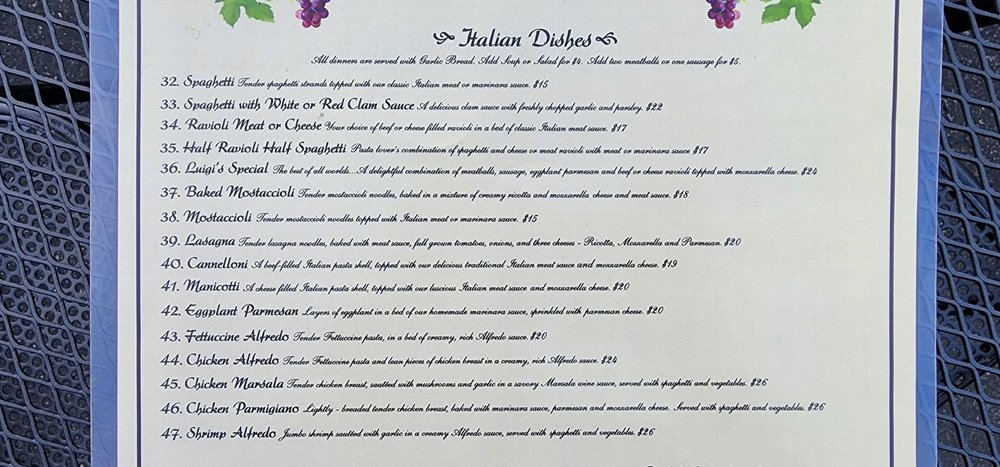 Italian Dishes
All dinners are served with Garlic Bread. Add Soup or Salad for $4. Add two meatballs or one sausage for $5.
32. Spaghetti Tender spaghetti strands topped with our classic Italian meat or marinara sauce. $15
33. Spaghetti with White or Red Clam Sauce A delicious clam sauce with freshly chopped garlic and parsley. $22
34. Ravioli Meat or Cheese Your choice of beef or cheese filled ravioli in a bed of classic Italian meat sauce. $17
35. Half Ravioli Half Spaghetti Pasta lover's combination of spaghetti and cheese or meat ravioli with meat or marinara sauce $17
36. Luigi's Special The best of all worlds...A delightful combination of meatballs, sausage, eggplant parmesan and beef or cheese ravioli topped with mozzarella cheese. $24
37. Baked Mostaccioli Tender mostaccioli noodles, baked in a mixture of creamy ricotta and mozzarella cheese and meat sauce. $18
38. Mostaccioli Tender mostaccioli noodles topped with Italian meat or marinara sauce. $15
39. Lasagna Tender lasagna noodles, baked with meat sauce, full grown tomatoes, onions, and three cheeses - Ricotta, Mozzarella and Parmesan. $20
40. Cannelloni A beef-filled Italian pasta shell, topped with our delicious traditional Italian meat sauce and mozzarella cheese. $19
41. Manicotti A cheese filled Italian pasta shell, topped with our luscious Italian meat sauce and mozzarella cheese. $20
42. Eggplant Parmesan Layers of eggplant in a bed of our homemade marinara sauce, sprinkled with parmesan cheese. $20
43. Fettuccine Alfredo Tender Fettuccine pasta, in a bed of creamy, rich Alfredo sauce. $20
44. Chicken Alfredo Tender Fettuccine pasta and lean pieces of chicken breast in a creamy, rich Alfredo sauce. $24
45. Chicken Marsala Tender chicken breast, sautted with mushrooms and garlic in a savory Marsala wine sauce, served with spaghetti and vegetables. $26
46. Chicken Parmigiano Lightly - breaded tender chicken breast, baked with marinara sauce, parmesan and mozzarella cheese. Served with spaghetti and vegetables. $26
47. Shrimp Alfredo Jumbo shrimp sautted with garlic in a creamy Alfredo sauce, served with spaghetti and vegetables. $26